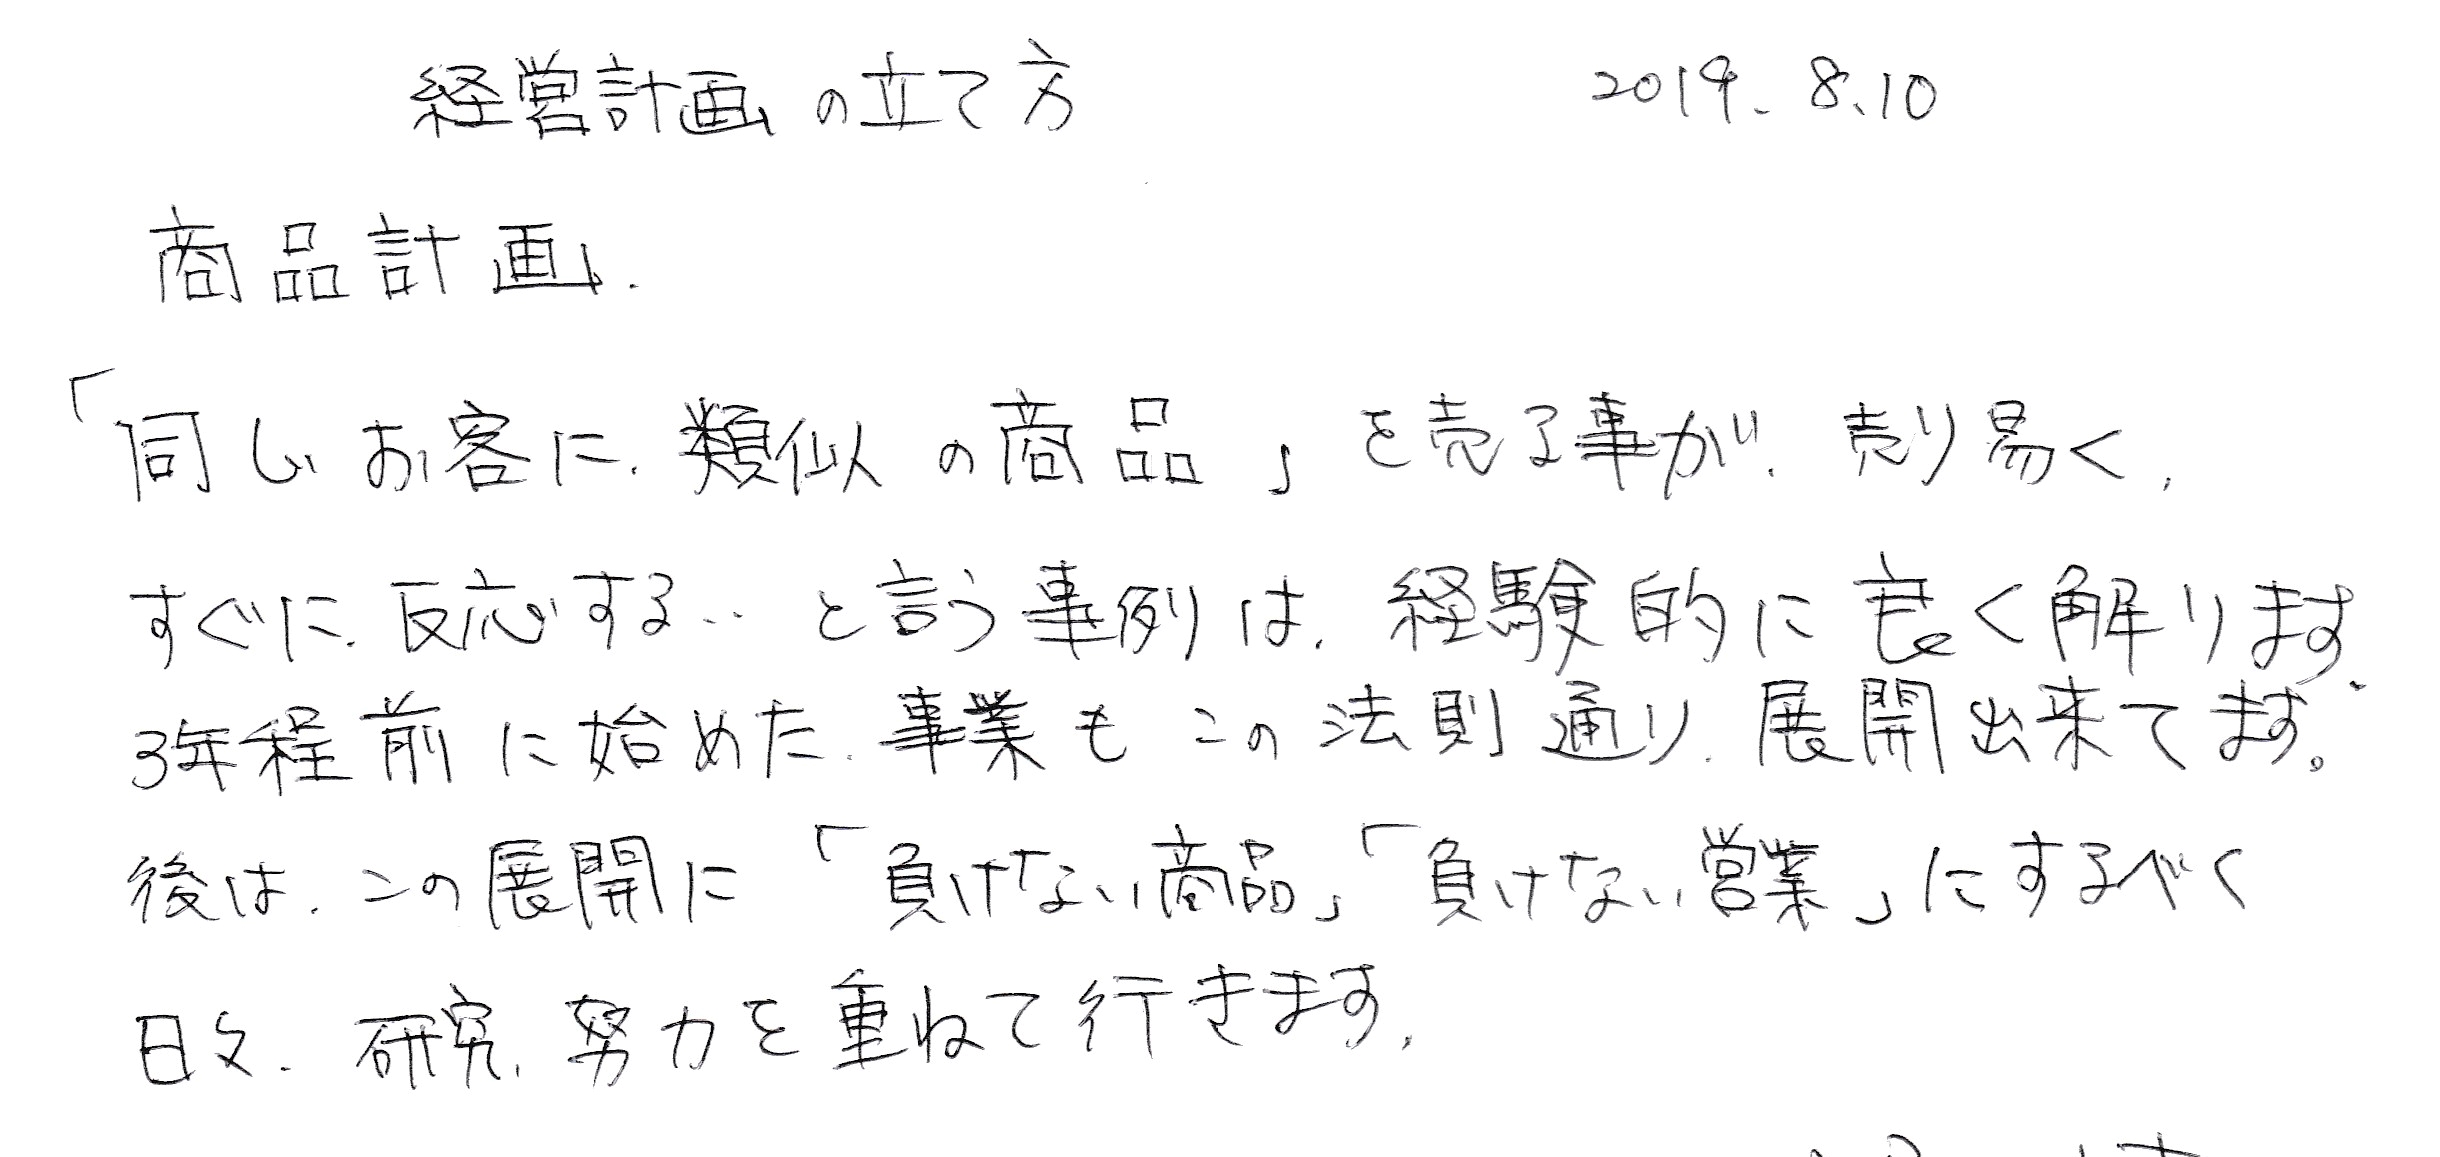 経営計画の立て方 2019.8.10
商品計画.
「同じお客に、類似の商品」を売る事が、売り易く、
すぐに、反応する‥と言う事例は、経験的に良く解ります、
3年程前に始めた、事業もこの法則通り、展開出来てます。
後は、この展開に「負けない商品」「負けない営業」にするべく
日々、研究、努力を重ねて行きます.